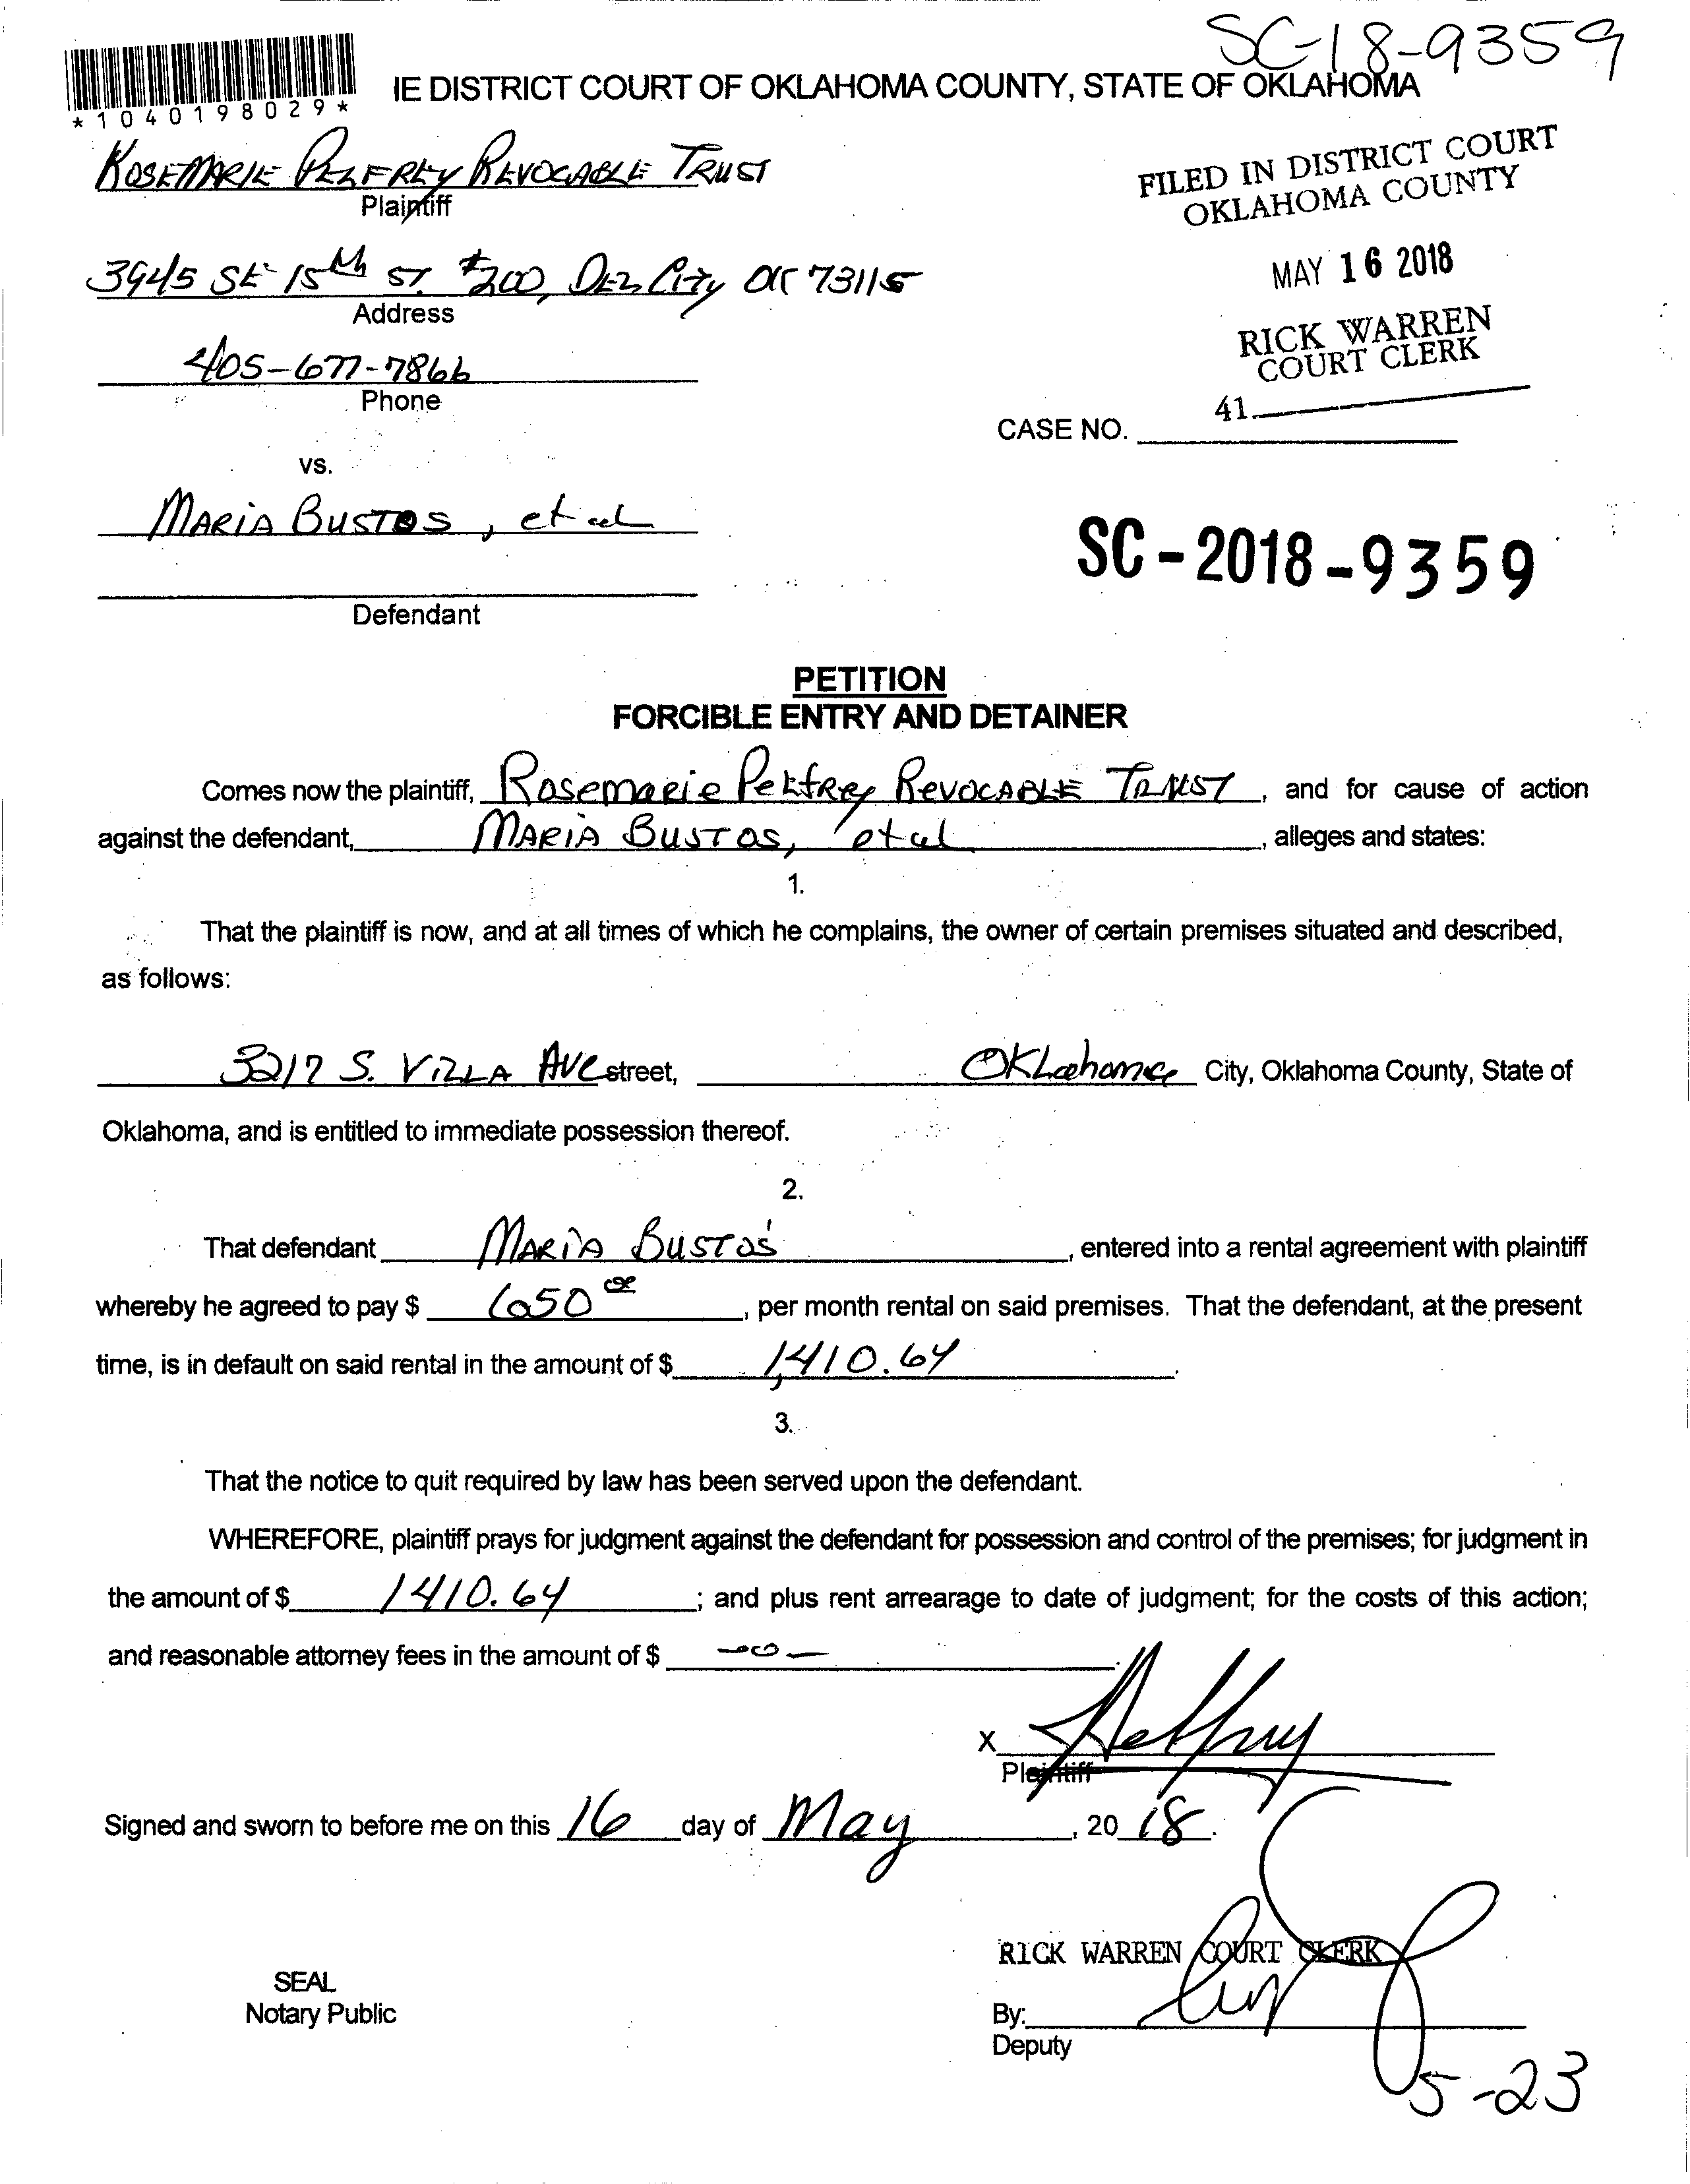 SC-18-9359
*1040198029*
IE DISTRICT COURT OF OKLAHOMA COUNTY, STATE OF OKLAHOMA
ROSEMARIE PELFREY REVOCABLE TRUST
Plaintiff
FILED IN DISTRICT COURT
OKLAHOMA COUNTY
MAY 16 2018
RICK WARREN
COURT CLERK
41
3945 SE 15th ST. #200, DEL City OK 73115
Address
405-677-7866
Phone
CASE NO.
vs.
MARIA BUSTOS, et al
SC-2018-9359
Defendant
PETITION
FORCIBLE ENTRY AND DETAINER
Comes now the plaintiff, Rosemarie Pelfrey REVOCABLE TRUST, and for cause of action
against the defendant, MARIA BUSTOS, et al, alleges and states:
1.
That the plaintiff is now, and at all times of which he complains, the owner of certain premises situated and described,
as follows:
3217 S. VILLA AVE street, Oklahoma City, Oklahoma County, State of
Oklahoma, and is entitled to immediate possession thereof.
2.
That defendant MARIA BUSTOS, entered into a rental agreement with plaintiff
whereby he agreed to pay $ 650 00, per month rental on said premises. That the defendant, at the present
time, is in default on said rental in the amount of $ 1,410.64.
3.
That the notice to quit required by law has been served upon the defendant.
WHEREFORE, plaintiff prays for judgment against the defendant for possession and control of the premises; for judgment in
the amount of $ 1410.64; and plus rent arrearage to date of judgment; for the costs of this action;
and reasonable attorney fees in the amount of $ -0-.
X Pelfrey
Plaintiff
Signed and sworn to before me on this 16 day of May, 20 18.
RICK WARREN COURT CLERK
SEAL
Notary Public
By:
Deputy
5-23